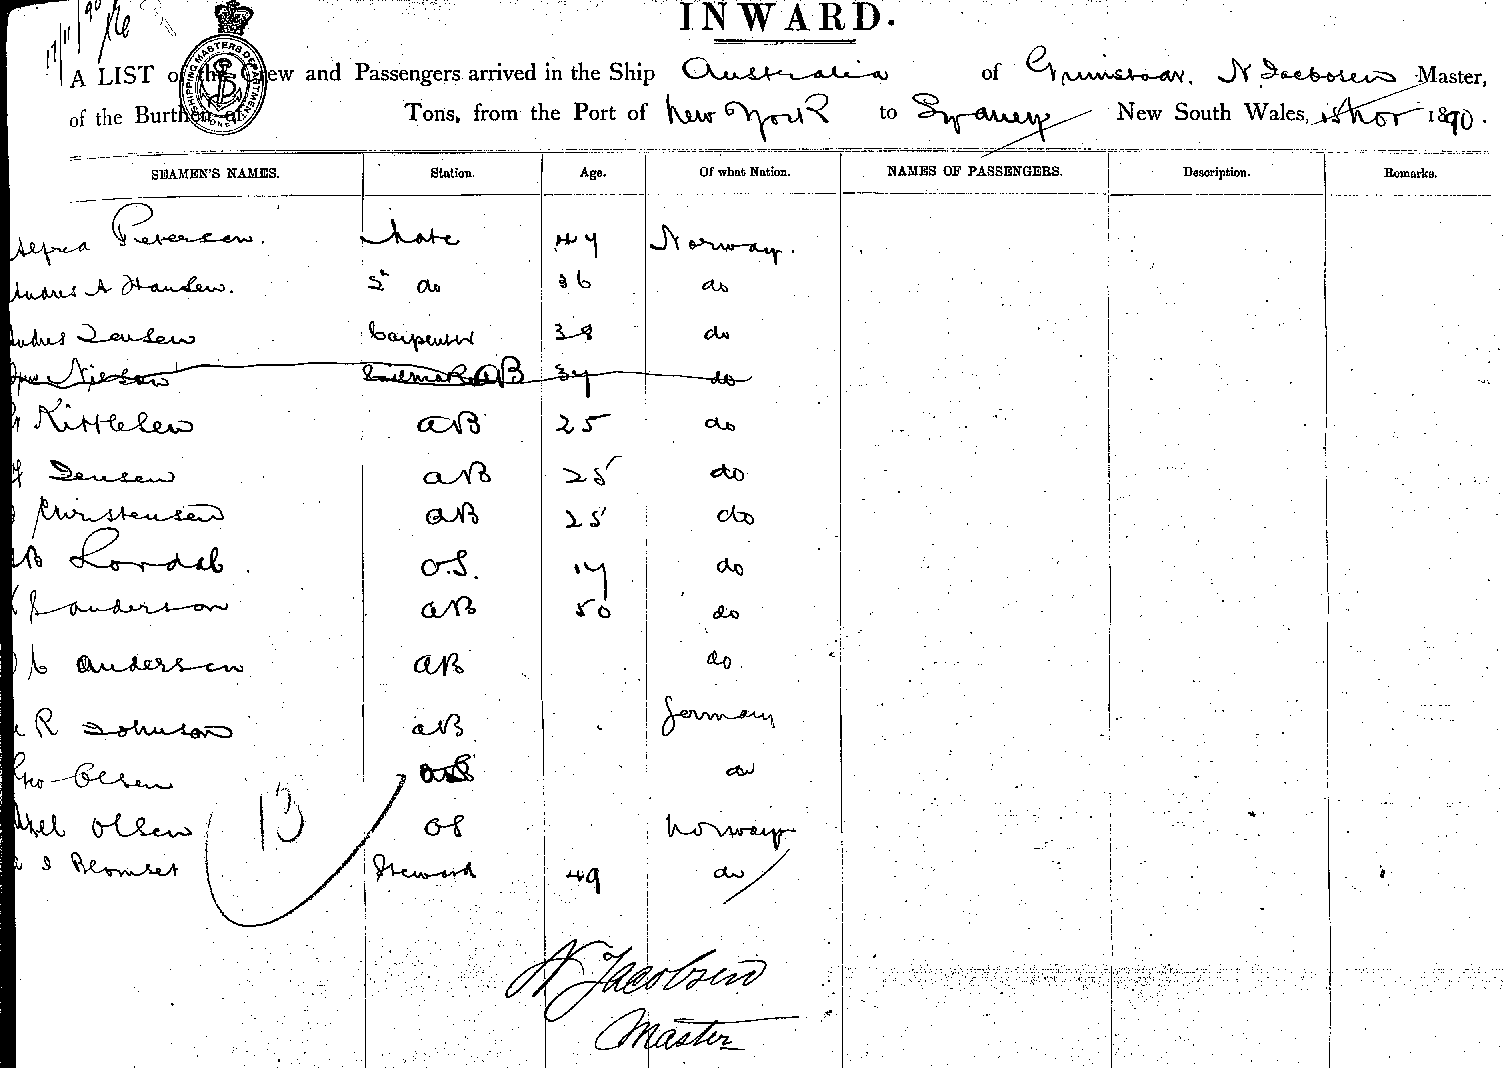 17/11/90
INWARD.
A LIST of the Crew and Passengers arrived in the Ship Australia of Grimstad, N Jacobsen Master,
of the Burthen of Tons, from the Port of New York to Sydney New South Wales, 15 Nov 1890.
SHIPPING MASTERS DEPARTMENT
SEAMEN'S NAMES. Station. Age. Of what Nation. NAMES OF PASSENGERS. Description. Remarks.
Alfred Petersen. Mate 47 Norway.
Andres A Hansen. 2nd do 36 do
Andres Jensen Carpenter 38 do
Nielson Sailmaker AB 37 do
Kittlesen AB 25 do
Jensen AB 25 do
Christensen AB 25 do
B Lordal. O.S. 17 do
Anderson AB 50 do
C Andersen AB do
R Johnson AB Germany
Geo Olsen do
Axel Olsen OS Norway
13
J Blomset Steward 49 do
N Jacobsen
Master